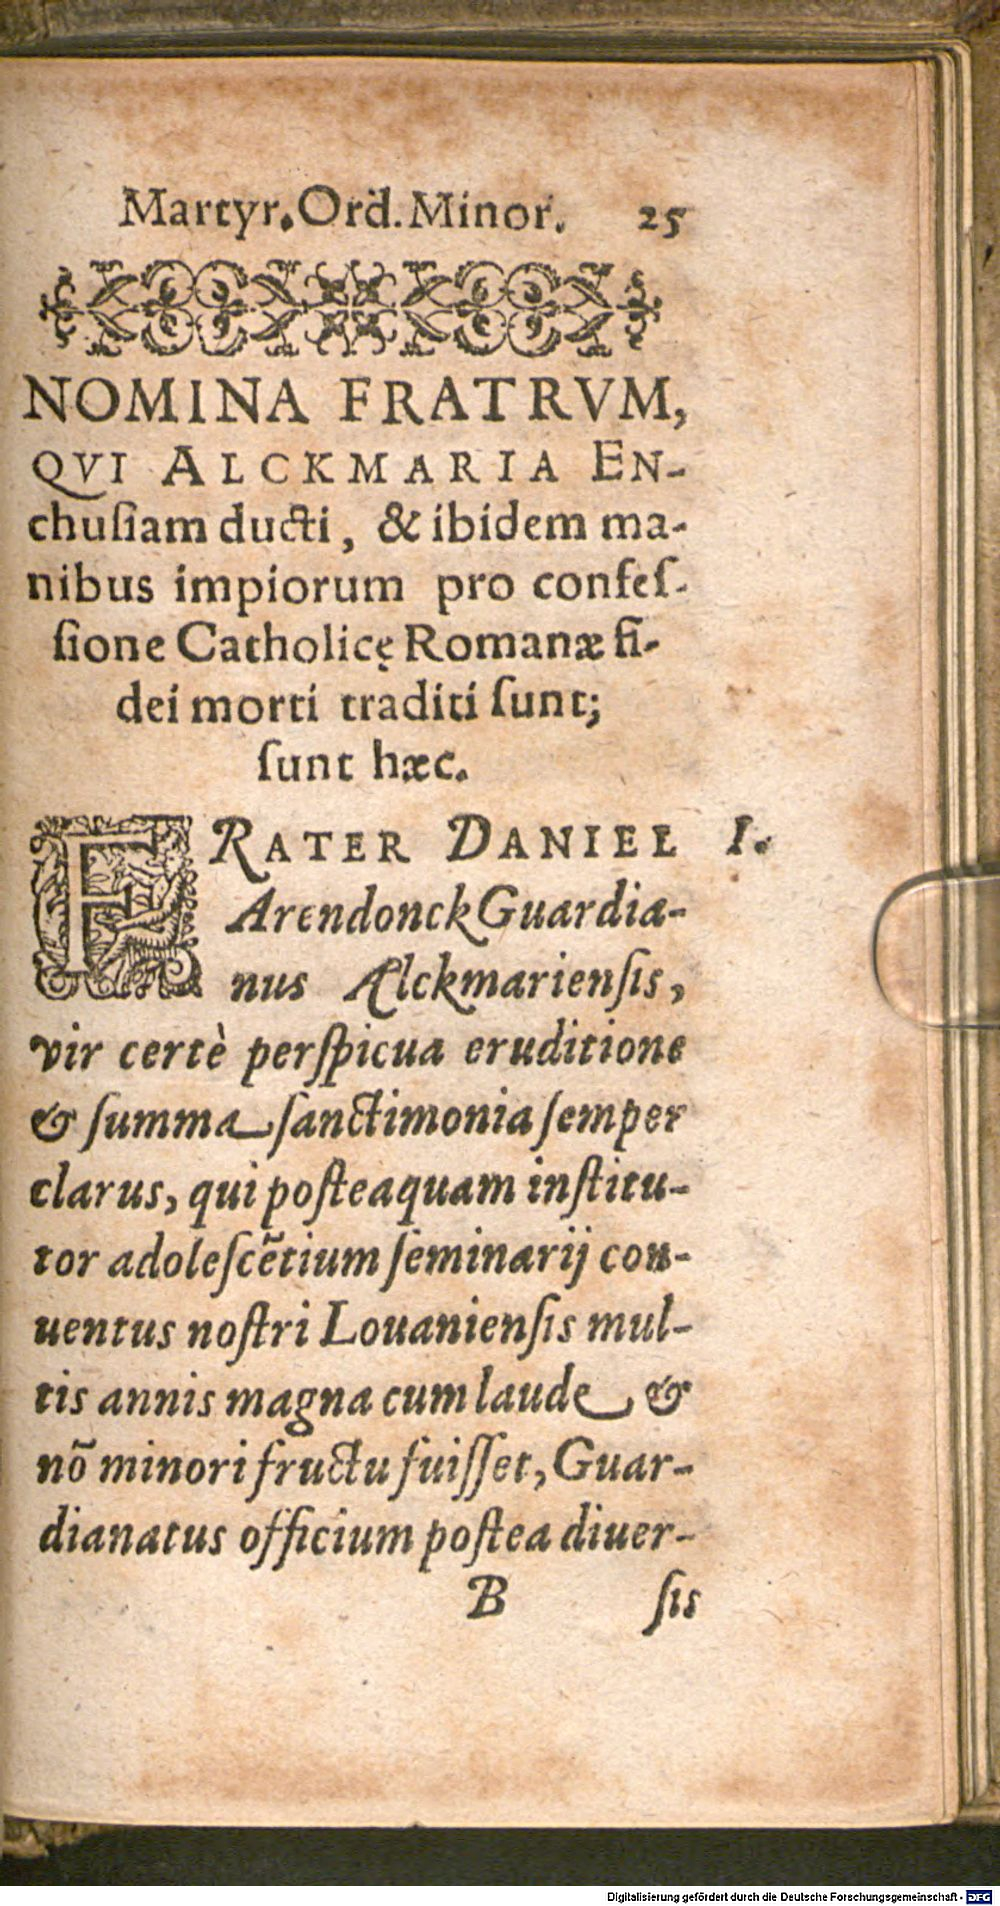 Martyr. Ord. Minor. 25
NOMINA FRATRVM,
QVI ALCKMARIA EN-
chuſiam ducti, & ibidem ma-
nibus impiorum pro confeſ-
ſione Catholicę Romanæ fi-
dei morti traditi ſunt;
ſunt hæc.
FRATER DANIEL I.
Arendonck Guardia-
nus Alckmarienſis,
vir certè perſpicua eruditione
& ſumma ſanctimonia ſemper
clarus, qui poſteaquam inſtitu-
tor adoleſcẽtium ſeminarij con-
uentus noſtri Louanienſis mul-
tis annis magna cum laude &
nõ minori fructu fuiſſet, Guar-
dianatus officium poſtea diuer-
B ſis
Digitalisierung gefördert durch die Deutsche Forschungsgemeinschaft - DFG